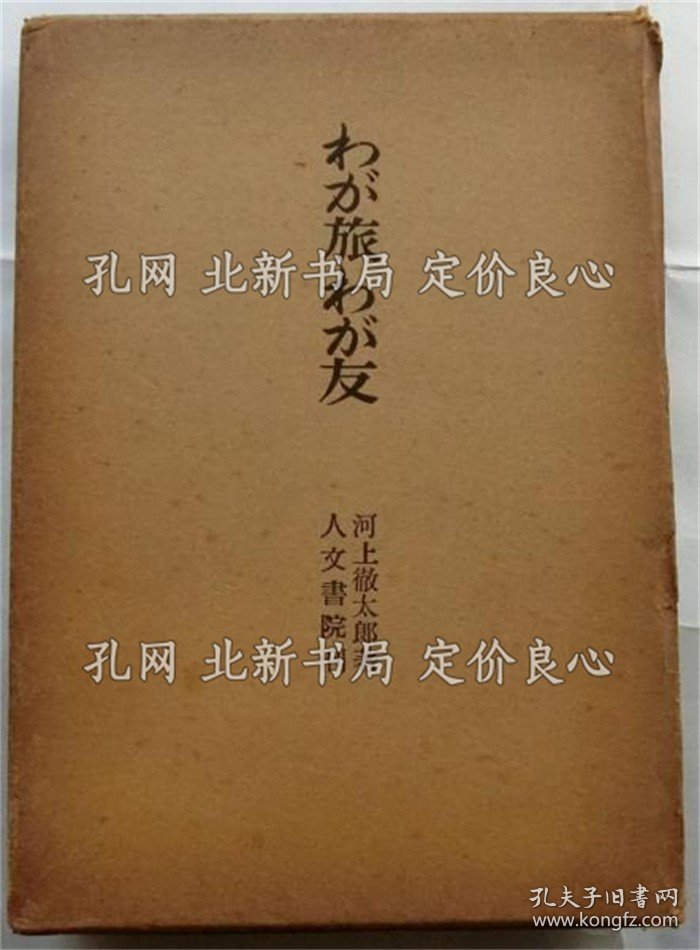 わが旅わが友
孔网 北新书局 定价良心
河上徹太郎著
人文書院
孔网 北新书局 定价良心
孔夫子旧书网
www.kongfz.com